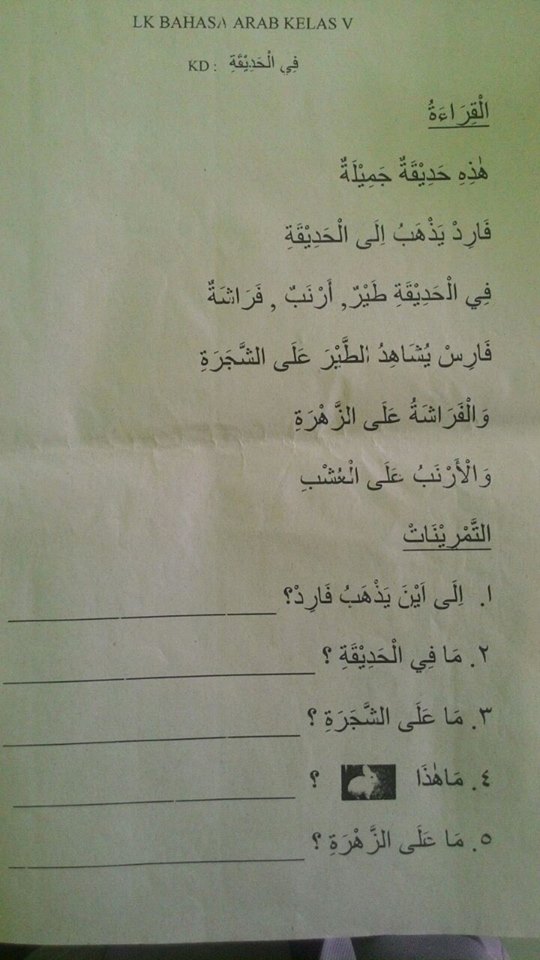 LK BAHASA ARAB KELAS V
KD : فِي الْحَدِيْقَةِ
الْقِرَاءَةُ
هٰذِهِ حَدِيْقَةٌ جَمِيْلَةٌ
فَارِدْ يَذْهَبُ اِلَى الْحَدِيْقَةِ
فِي الْحَدِيْقَةِ طَيْرٌ, أَرْنَبٌ , فَرَاشَةٌ
فَارِسْ يُشَاهِدُ الطَّيْرَ عَلَى الشَّجَرَةِ
وَالْفَرَاشَةُ عَلَى الزَّهْرَةِ
وَالْأَرْنَبُ عَلَى الْعُشْبِ
التَّمْرِيْنَاتْ
١. اِلَى اَيْنَ يَذْهَبُ فَارِدْ؟
٢. مَا فِي الْحَدِيْقَةِ ؟
٣. مَا عَلَى الشَّجَرَةِ ؟
٤. مَاهٰذَا ؟
٥. مَا عَلَى الزَّهْرَةِ ؟